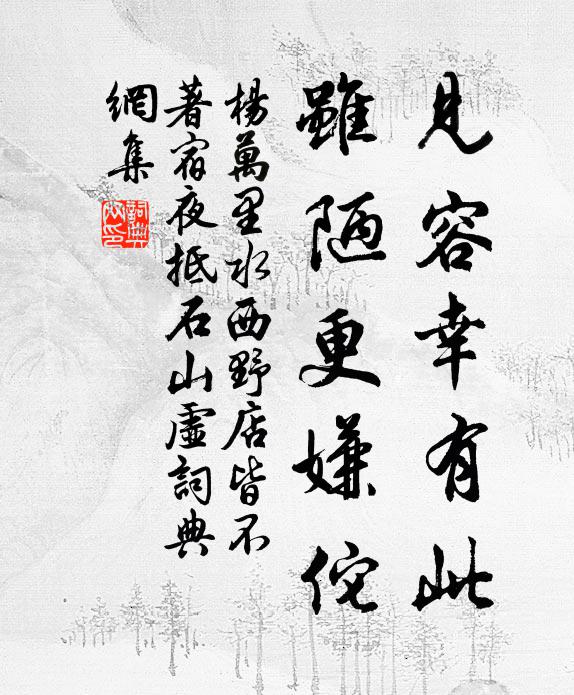 見容幸有此
雖陋更嫌侘
楊萬里水西野店皆不
著宿夜抵石山虛詞典
網集